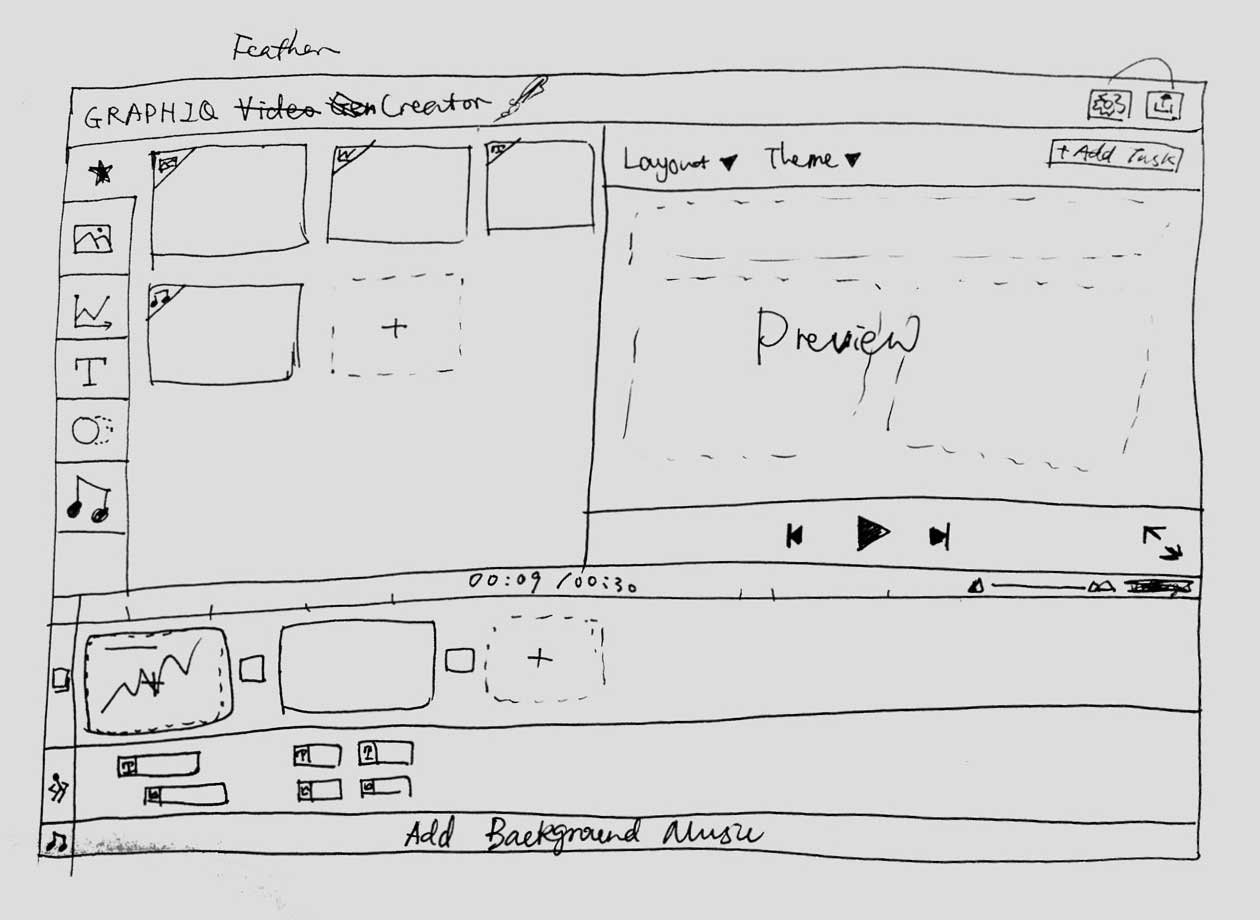 Feather
GRAPHIQ Video Gen Creator
Layout ▼ Theme ▼ + Add Task
+
Preview
T
00:09 / 00:30
+
T T T
Add Background Music